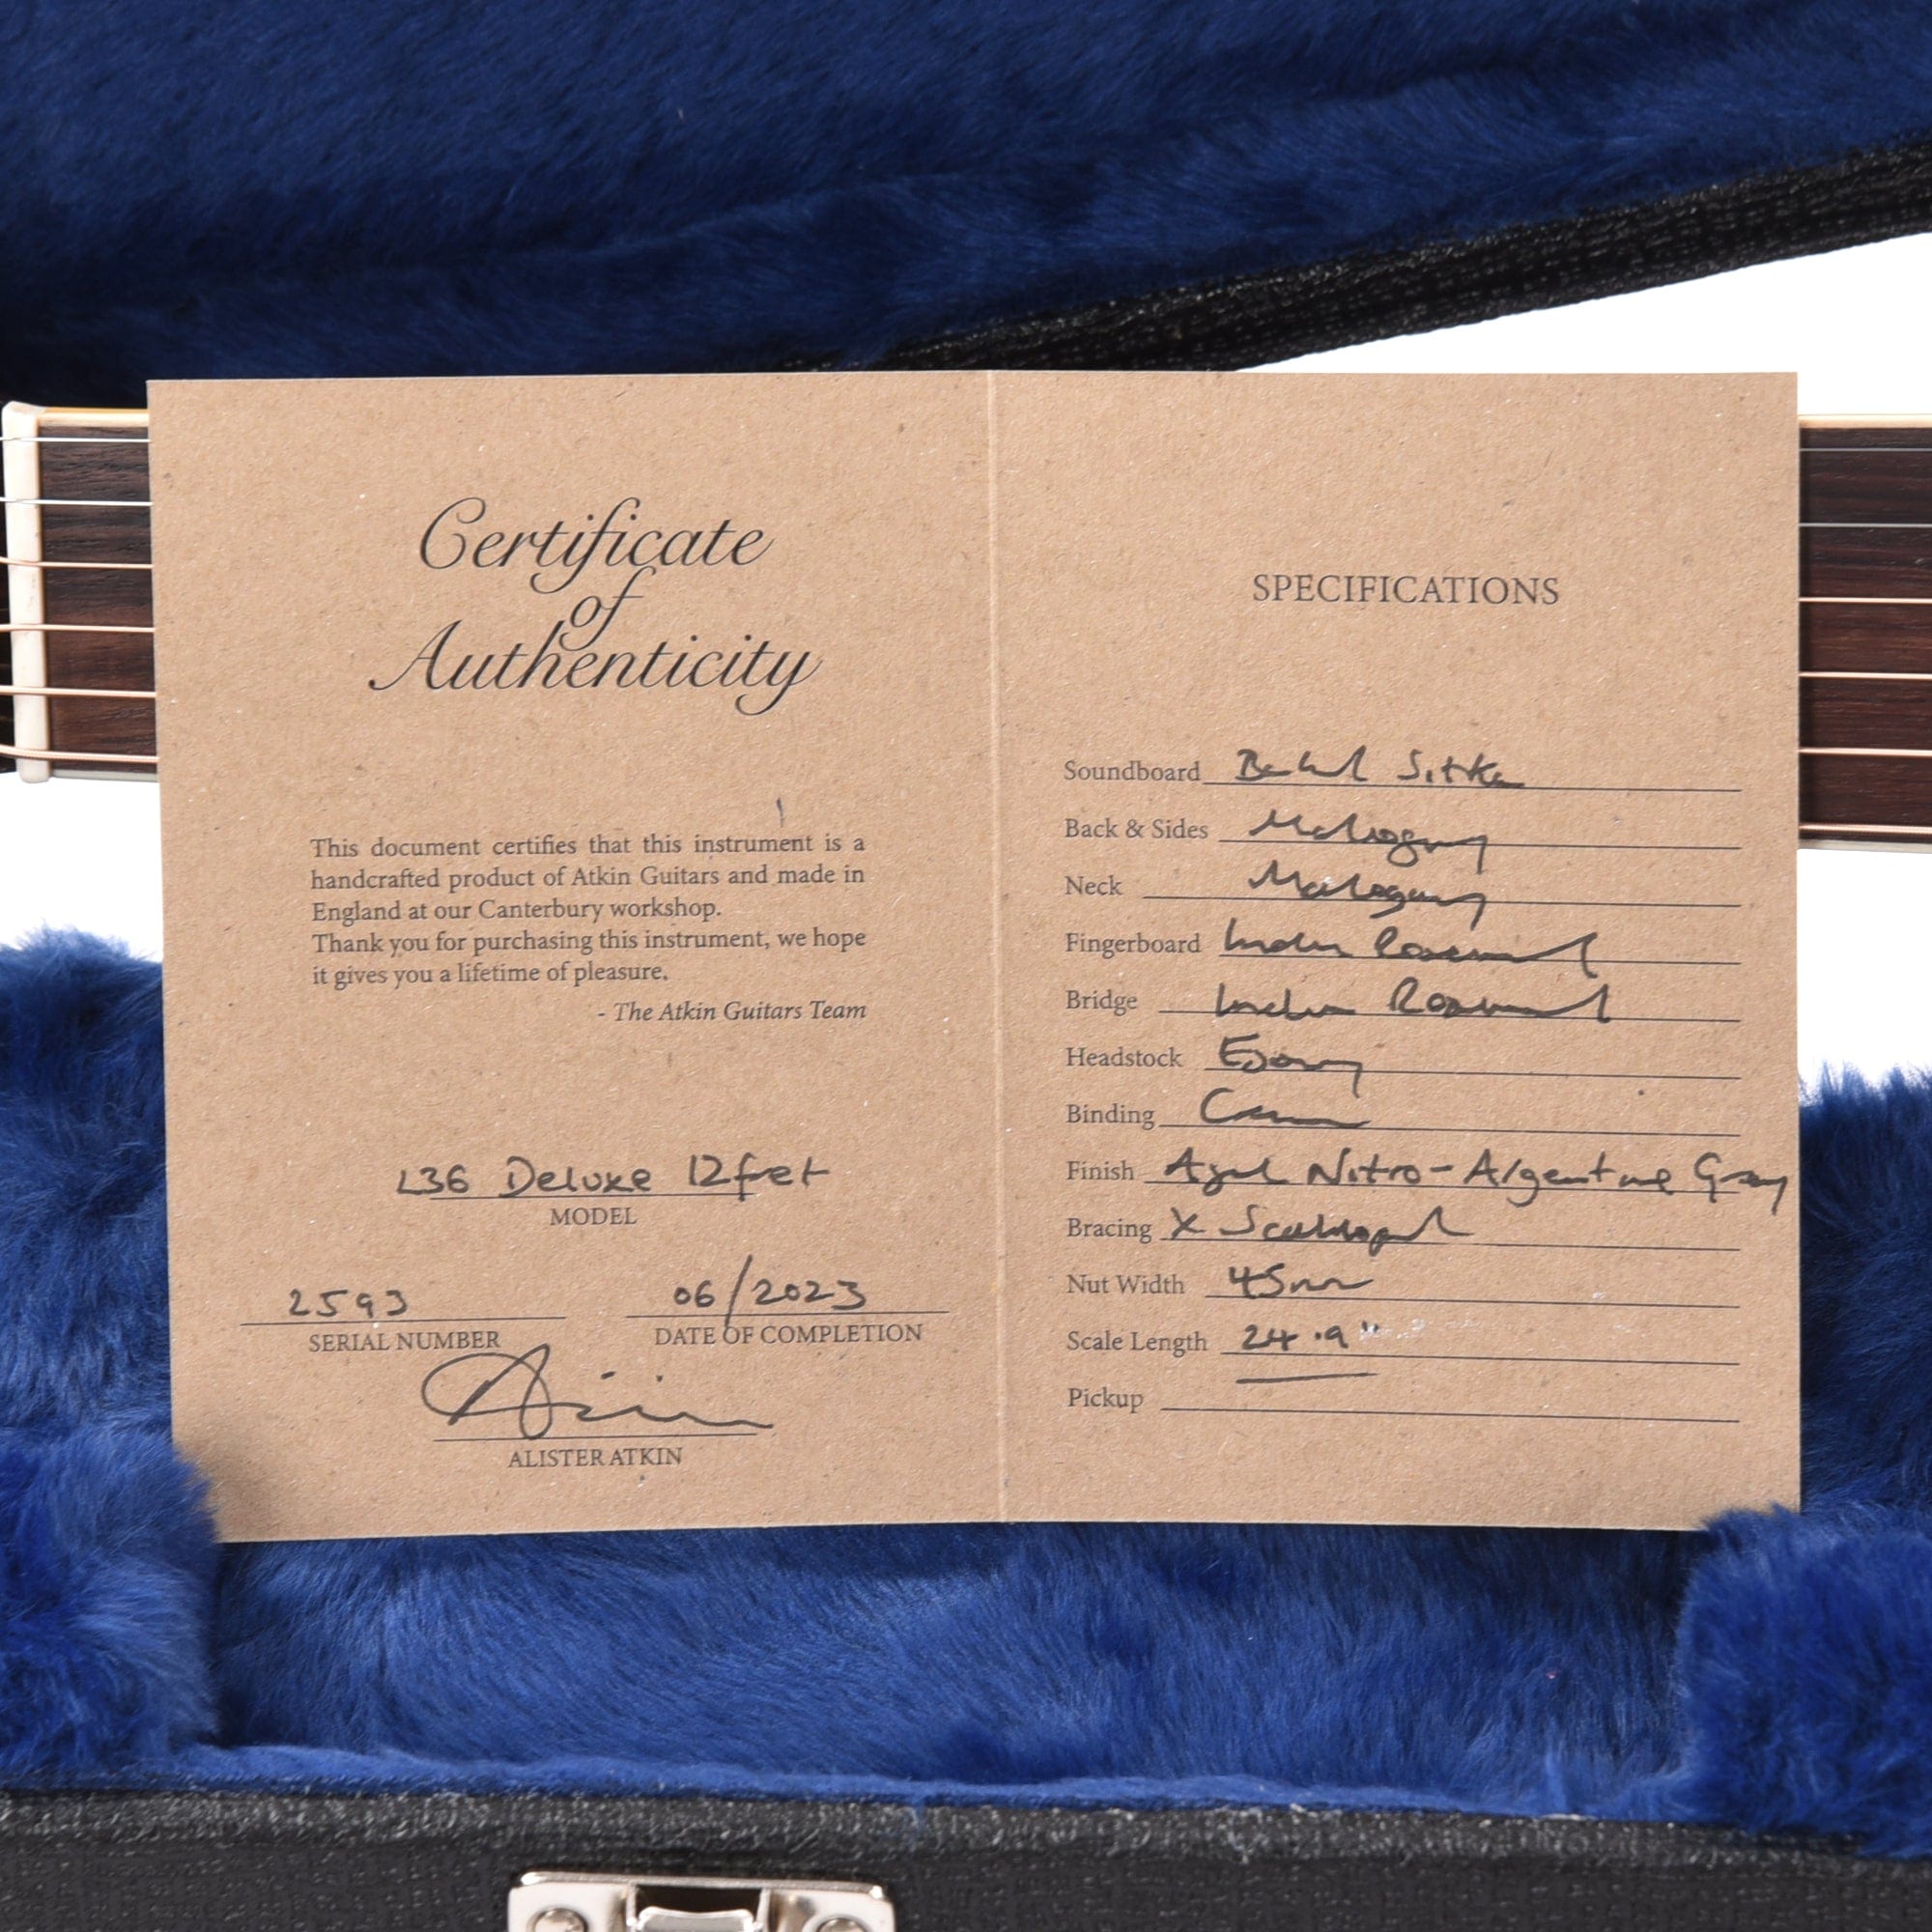 Certificate
of
Authenticity
This document certifies that this instrument is a
handcrafted product of Atkin Guitars and made in
England at our Canterbury workshop.
Thank you for purchasing this instrument, we hope
it gives you a lifetime of pleasure.
- The Atkin Guitars Team
L36 Deluxe 12fret
MODEL
2593
SERIAL NUMBER
06/2023
DATE OF COMPLETION
Atkin
ALISTER ATKIN
SPECIFICATIONS
Soundboard Baked Sitka
Back & Sides Mahogany
Neck Mahogany
Fingerboard Indian Rosewood
Bridge Indian Rosewood
Headstock Ebony
Binding Cream
Finish Aged Nitro - Argentine Grey
Bracing X Scalloped
Nut Width 45mm
Scale Length 24.9"
Pickup